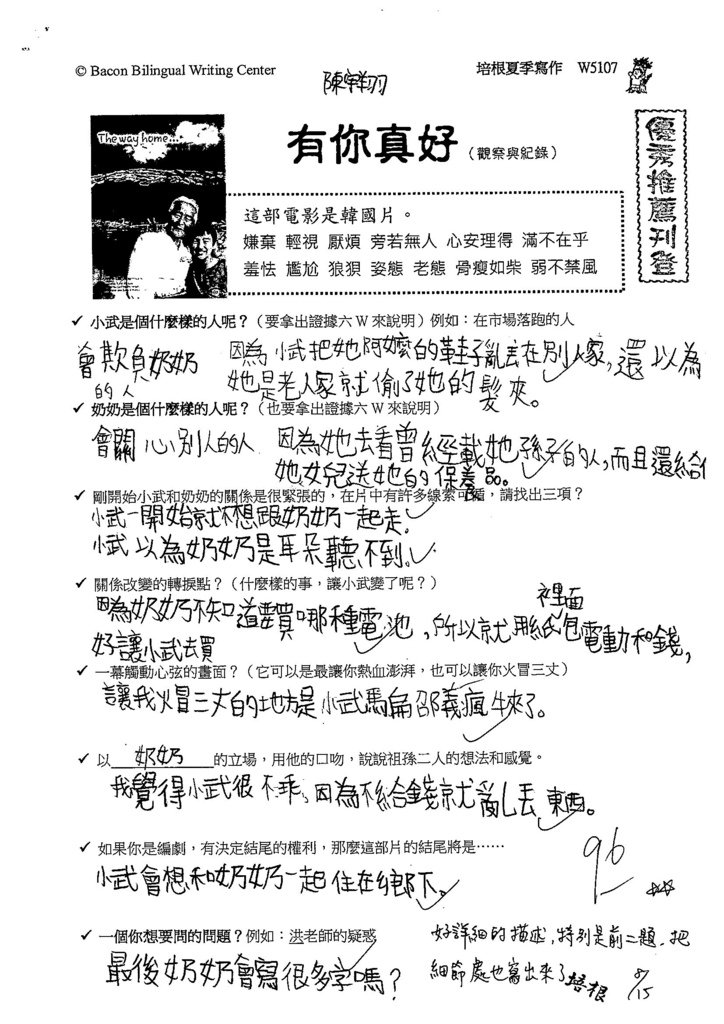 © Bacon Bilingual Writing Center
培根夏季寫作 W5107
陳宇翔
The way home...
有你真好（觀察與紀錄）
優秀推薦刊登
這部電影是韓國片。
嫌棄 輕視 厭煩 旁若無人 心安理得 滿不在乎
羞怯 尷尬 狼狽 姿態 老態 骨瘦如柴 弱不禁風
✓ 小武是個什麼樣的人呢？（要拿出證據六 W 來說明）例如：在市場落跑的人
會欺負奶奶的人
因為小武把她阿嬤的鞋子亂丟在別人家，還以為
她是老人家就偷了她的髮夾。
✓ 奶奶是個什麼樣的人呢？（也要拿出證據六 W 來說明）
會關心別人的人
因為她去看曾經載她孫子的人，而且還給
她女兒送她的保養品。
✓ 剛開始小武和奶奶的關係是很緊張的，在片中有許多線索可循，請找出三項？
小武一開始就不想跟奶奶一起走。
小武以為奶奶是耳朵聽不到。
✓ 關係改變的轉捩點？（什麼樣的事，讓小武變了呢？）
因為奶奶不知道要買哪種電池，所以就用紙包裡面電動和錢，
好讓小武去買
✓ 一幕觸動心弦的畫面？（它可以是最讓你熱血澎湃，也可以讓你火冒三丈）
讓我火冒三丈的地方是小武馬扁邵義瘋牛來了。
✓ 以 奶奶 的立場，用他的口吻，說說祖孫二人的想法和感覺。
我覺得小武很不乖，因為不給錢就亂丟東西。
✓ 如果你是編劇，有決定結尾的權利，那麼這部片的結尾將是……
小武會想和奶奶一起住在鄉下。
96
✓ 一個你想要問的問題？例如：洪老師的疑惑
最後奶奶會寫很多字嗎？
好詳細的描述，特別是前二題，把
細節處也寫出來了 培根 8/15